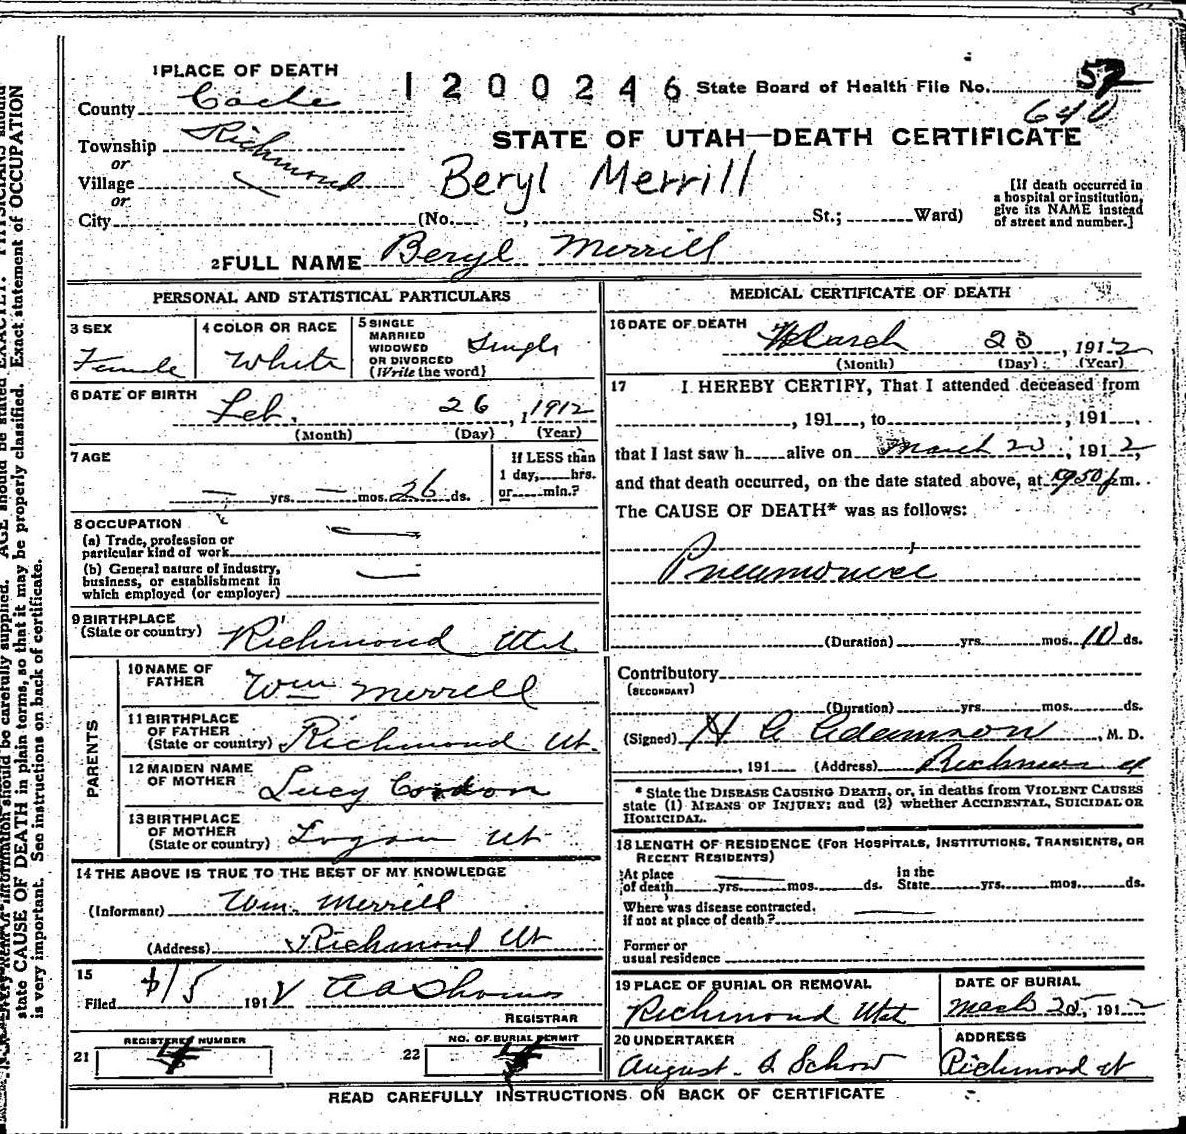 1 PLACE OF DEATH
1200246 State Board of Health File No. 57
640
County Cache
STATE OF UTAH—DEATH CERTIFICATE
Township Richmond
or
Village
or
Beryl Merrill
[If death occurred in a hospital or institution, give its NAME instead of street and number.]
City (No. , St.; Ward)
2 FULL NAME Beryl Merrill
PERSONAL AND STATISTICAL PARTICULARS
3 SEX Female
4 COLOR OR RACE White
5 SINGLE MARRIED WIDOWED OR DIVORCED (Write the word) Single
6 DATE OF BIRTH Feb. 26, 1912
(Month) (Day) (Year)
7 AGE — yrs. — mos. 26 ds.
If LESS than 1 day, hrs. or min.?
8 OCCUPATION
(a) Trade, profession or particular kind of work —
(b) General nature of industry, business, or establishment in which employed (or employer) —
9 BIRTHPLACE (State or country) Richmond Utah
PARENTS
10 NAME OF FATHER Wm Merrill
11 BIRTHPLACE OF FATHER (State or country) Richmond Ut.
12 MAIDEN NAME OF MOTHER Lucy Cordon
13 BIRTHPLACE OF MOTHER (State or country) Logan Ut
14 THE ABOVE IS TRUE TO THE BEST OF MY KNOWLEDGE
(Informant) Wm. Merrill
(Address) Richmond Ut
15
Filed 4/5 191
REGISTRAR
21 REGISTERED NUMBER 4
22 NO. OF BURIAL PERMIT 4
MEDICAL CERTIFICATE OF DEATH
16 DATE OF DEATH March 23, 1912
(Month) (Day) (Year)
17 I HEREBY CERTIFY, That I attended deceased from
, 191 , to , 191 ,
that I last saw h alive on March 23, 1912,
and that death occurred, on the date stated above, at m.
The CAUSE OF DEATH* was as follows:
Pneumonia
(Duration) yrs. mos. 10 ds.
Contributory (SECONDARY)
(Duration) yrs. mos. ds.
(Signed) Adamson, M. D.
, 191 (Address) Richmond Ut
* State the DISEASE CAUSING DEATH, or, in deaths from VIOLENT CAUSES
state (1) MEANS OF INJURY; and (2) whether ACCIDENTAL, SUICIDAL OR
HOMICIDAL.
18 LENGTH OF RESIDENCE (FOR HOSPITALS, INSTITUTIONS, TRANSIENTS, OR
RECENT RESIDENTS)
At place of death yrs. mos. ds. In the State yrs. mos. ds.
Where was disease contracted, if not at place of death? —
Former or usual residence
19 PLACE OF BURIAL OR REMOVAL Richmond Utah
DATE OF BURIAL March 25, 1912
20 UNDERTAKER August S Schow
ADDRESS Richmond Ut
READ CAREFULLY INSTRUCTIONS ON BACK OF CERTIFICATE
AGE should be stated EXACTLY. PHYSICIANS should
state CAUSE OF DEATH in plain terms, so that it may be properly classified. Exact statement of OCCUPATION
is very important. See instructions on back of certificate.